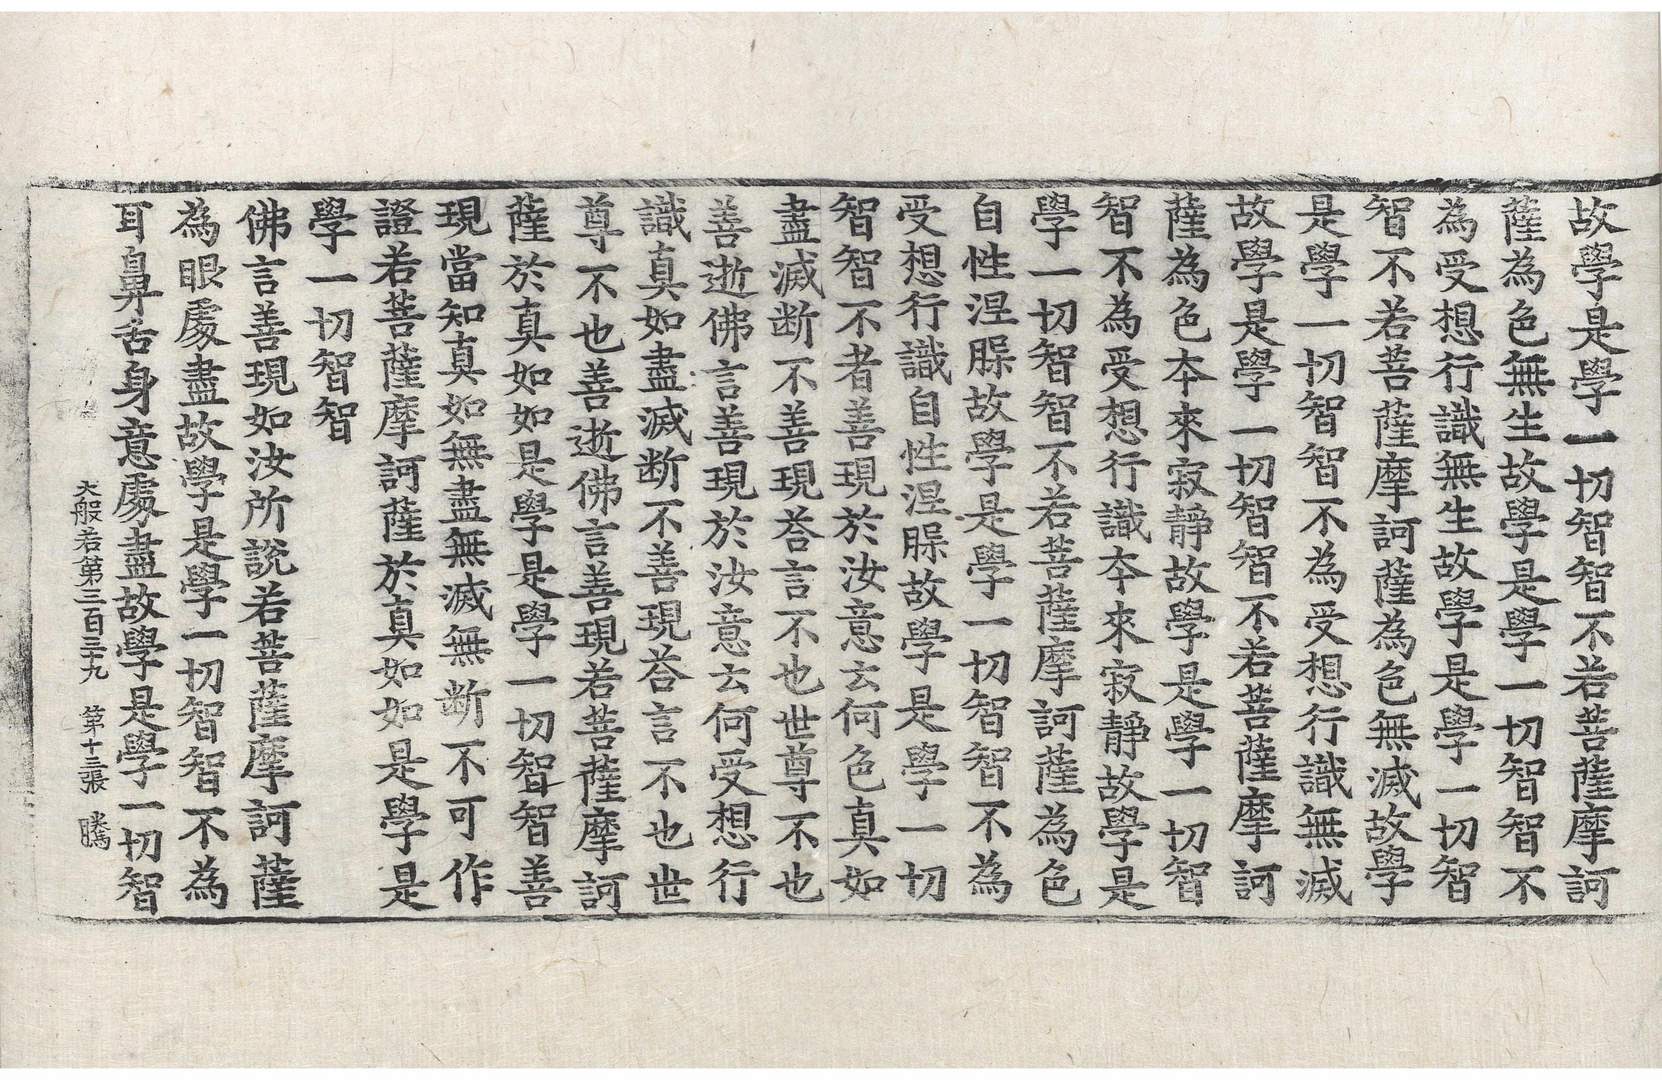 故學是學一切智智不若菩薩摩訶
薩為色無生故學是學一切智智不
為受想行識無生故學是學一切智
智不若菩薩摩訶薩為色無滅故學
是學一切智智不為受想行識無滅
故學是學一切智智不若菩薩摩訶
薩為色本來寂靜故學是學一切智
智不為受想行識本來寂靜故學是
學一切智智不若菩薩摩訶薩為色
自性涅槃故學是學一切智智不為
受想行識自性涅槃故學是學一切
智智不者善現於汝意云何色真如
盡滅断不善現荅言不也世尊不也
善逝佛言善現於汝意云何受想行
識真如盡滅断不善現荅言不也世
尊不也善逝佛言善現若菩薩摩訶
薩於真如如是學是學一切智智善
現當知真如無盡無滅無断不可作
證若菩薩摩訶薩於真如如是學是
學一切智智
佛言善現如汝所說若菩薩摩訶薩
為眼處盡故學是學一切智智不為
耳鼻舌身意處盡故學是學一切智
大般若第三百三十九 第十三張 騰